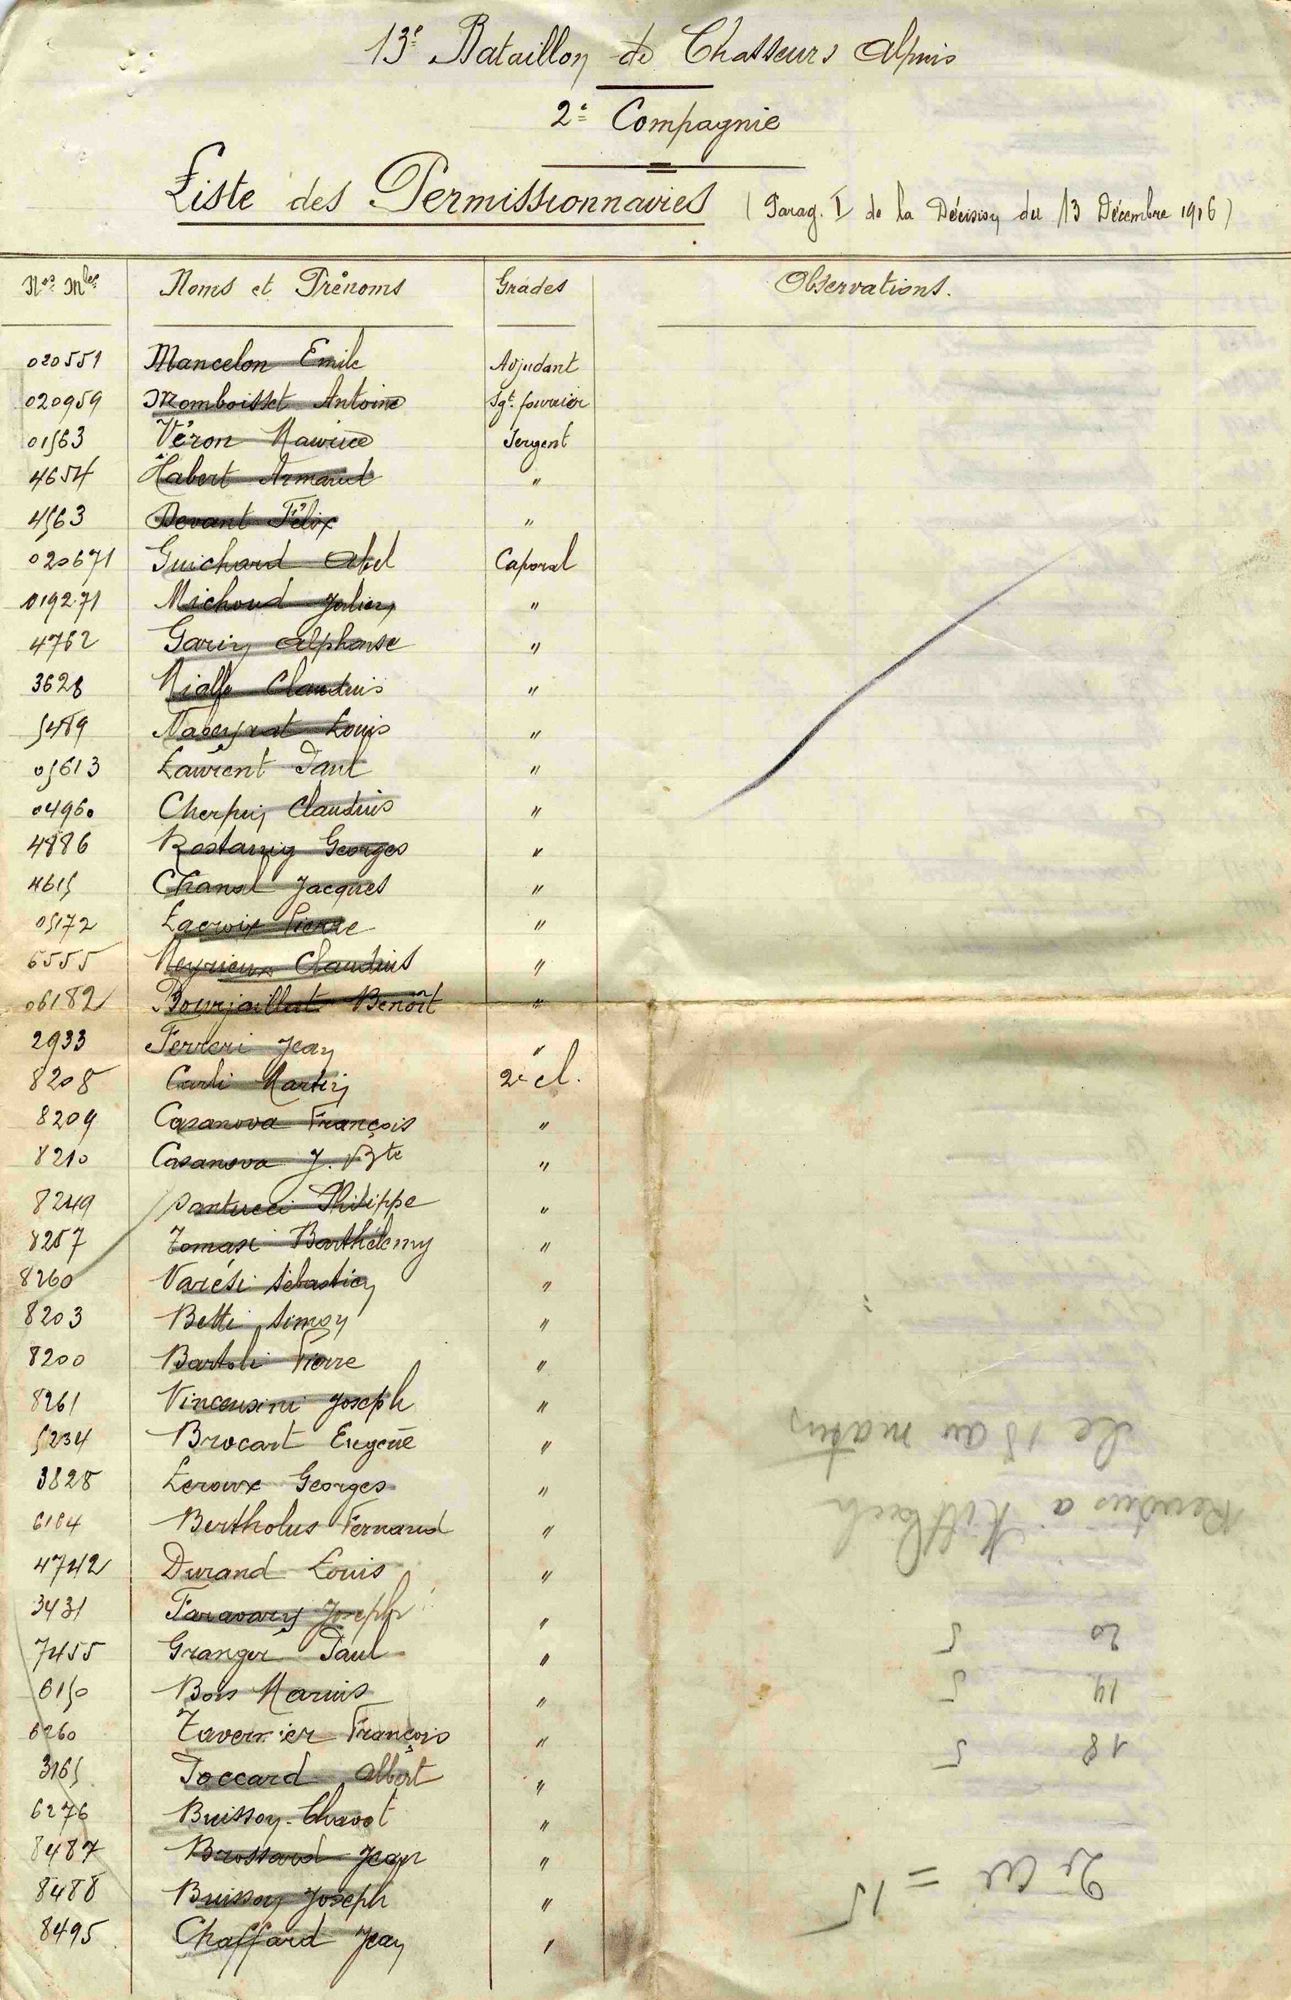 13e Bataillon de Chasseurs Alpins
2e Compagnie
Liste des Permissionnaires (Parag. I de la Décision du 13 Décembre 1916)
Nos Mles Noms et Prénoms Grades Observations.
020551 Mancelon Emile Adjudant
020959 Momboisset Antoine Sgt. fourrier
01563 Véron Maurice Sergent
4654 Habert Armand "
4563 Devant Félix "
020671 Guichard Abel Caporal
019271 Michoud Julien "
4762 Garin Alphonse "
3628 Claudius "
5489 Louis "
05613 Laurent Paul "
04960 Cherpin Claudius "
4886 Rostaing Georges "
4615 Chanal Jacques "
05172 Lacroix Pierre "
6555 Meyrieux Claudius "
06182 Bourjaillat Benoît "
2933 Ferreri Jean "
8208 Carli Martin 2e cl.
8209 Casanova François "
8210 Casanova J. Bte "
8249 Santucci Philippe "
8257 Tomasi Barthélemy "
8260 Varési Sébastien "
8203 Betti Simon "
8200 Bartoli Pierre "
8261 Vincensini Joseph "
5234 Brocart Eugène "
3828 Leroux Georges "
6164 Bertholus Fernand "
4742 Durand Louis "
3431 Faravary Joseph "
7455 Granger Paul "
6150 Bois Marius "
6260 Tavernier François "
3165 Poccard Albert "
6276 Buisson-Chavot "
8487 Brossard Jean "
8488 Buisson Joseph "
8495 Chaffard Jean "
2e Cie = 15
18 5
19 5
20 5
Rendus à
le 18 au matin